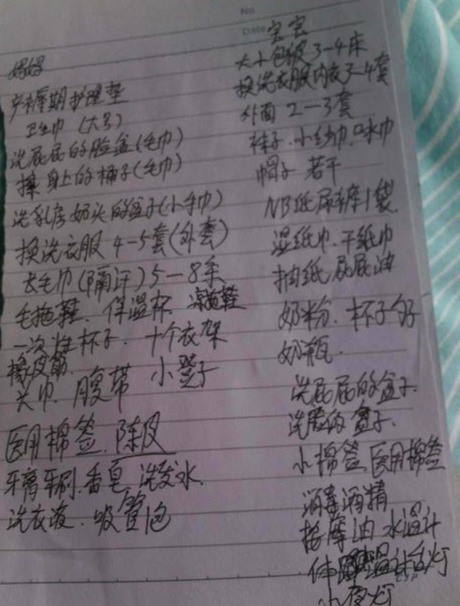 妈妈
产褥期护理垫
卫生巾 (大号)
洗屁屁的脸盆(毛巾)
擦身上的桶子(毛巾)
洗乳房奶头的盆子(小手巾)
换洗衣服 4-5套(外套)
长毛巾(隔汗)5-8条
毛拖鞋、保温杯、凉拖鞋
一次性杯子、十个衣架
橡皮筋、
头巾、腹带 小凳子
医用棉签、
牙膏牙刷.香皂.洗发水、
洗衣液、吸管
No.
Date 宝宝
大小包被3-4床
换洗衣服内衣3-4套
外面 2-3套
袜子、小纱巾、口水巾
帽子 若干
NB纸尿裤1袋
湿纸巾、干纸巾
抽纸屁屁油
奶粉、杯子勺子
奶瓶、
洗屁屁的盆子、
洗脸的盆子、
小棉签、医用棉签
消毒酒精
按摩油 水温计
小夜灯